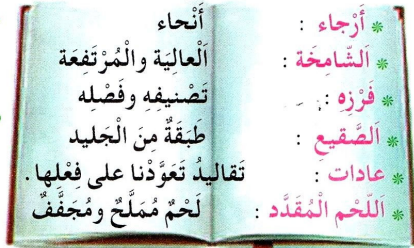 * أَرْجاء : أَنْحاء
* اَلشّامِخَة : اَلْعالِيَة والْمُرْتَفِعَة
* فَرْزِه : تَصْنيفِهِ وفَصْلِه
* اَلصَّقيع : طَبَقَةٌ مِنَ الْجَليد
* عادات : تَقاليدُ تَعَوَّدْنا على فِعْلِها .
* اَللَّحْم الْمُقَدَّد : لَحْمٌ مُمَلَّحٌ ومُجَفَّفٌ